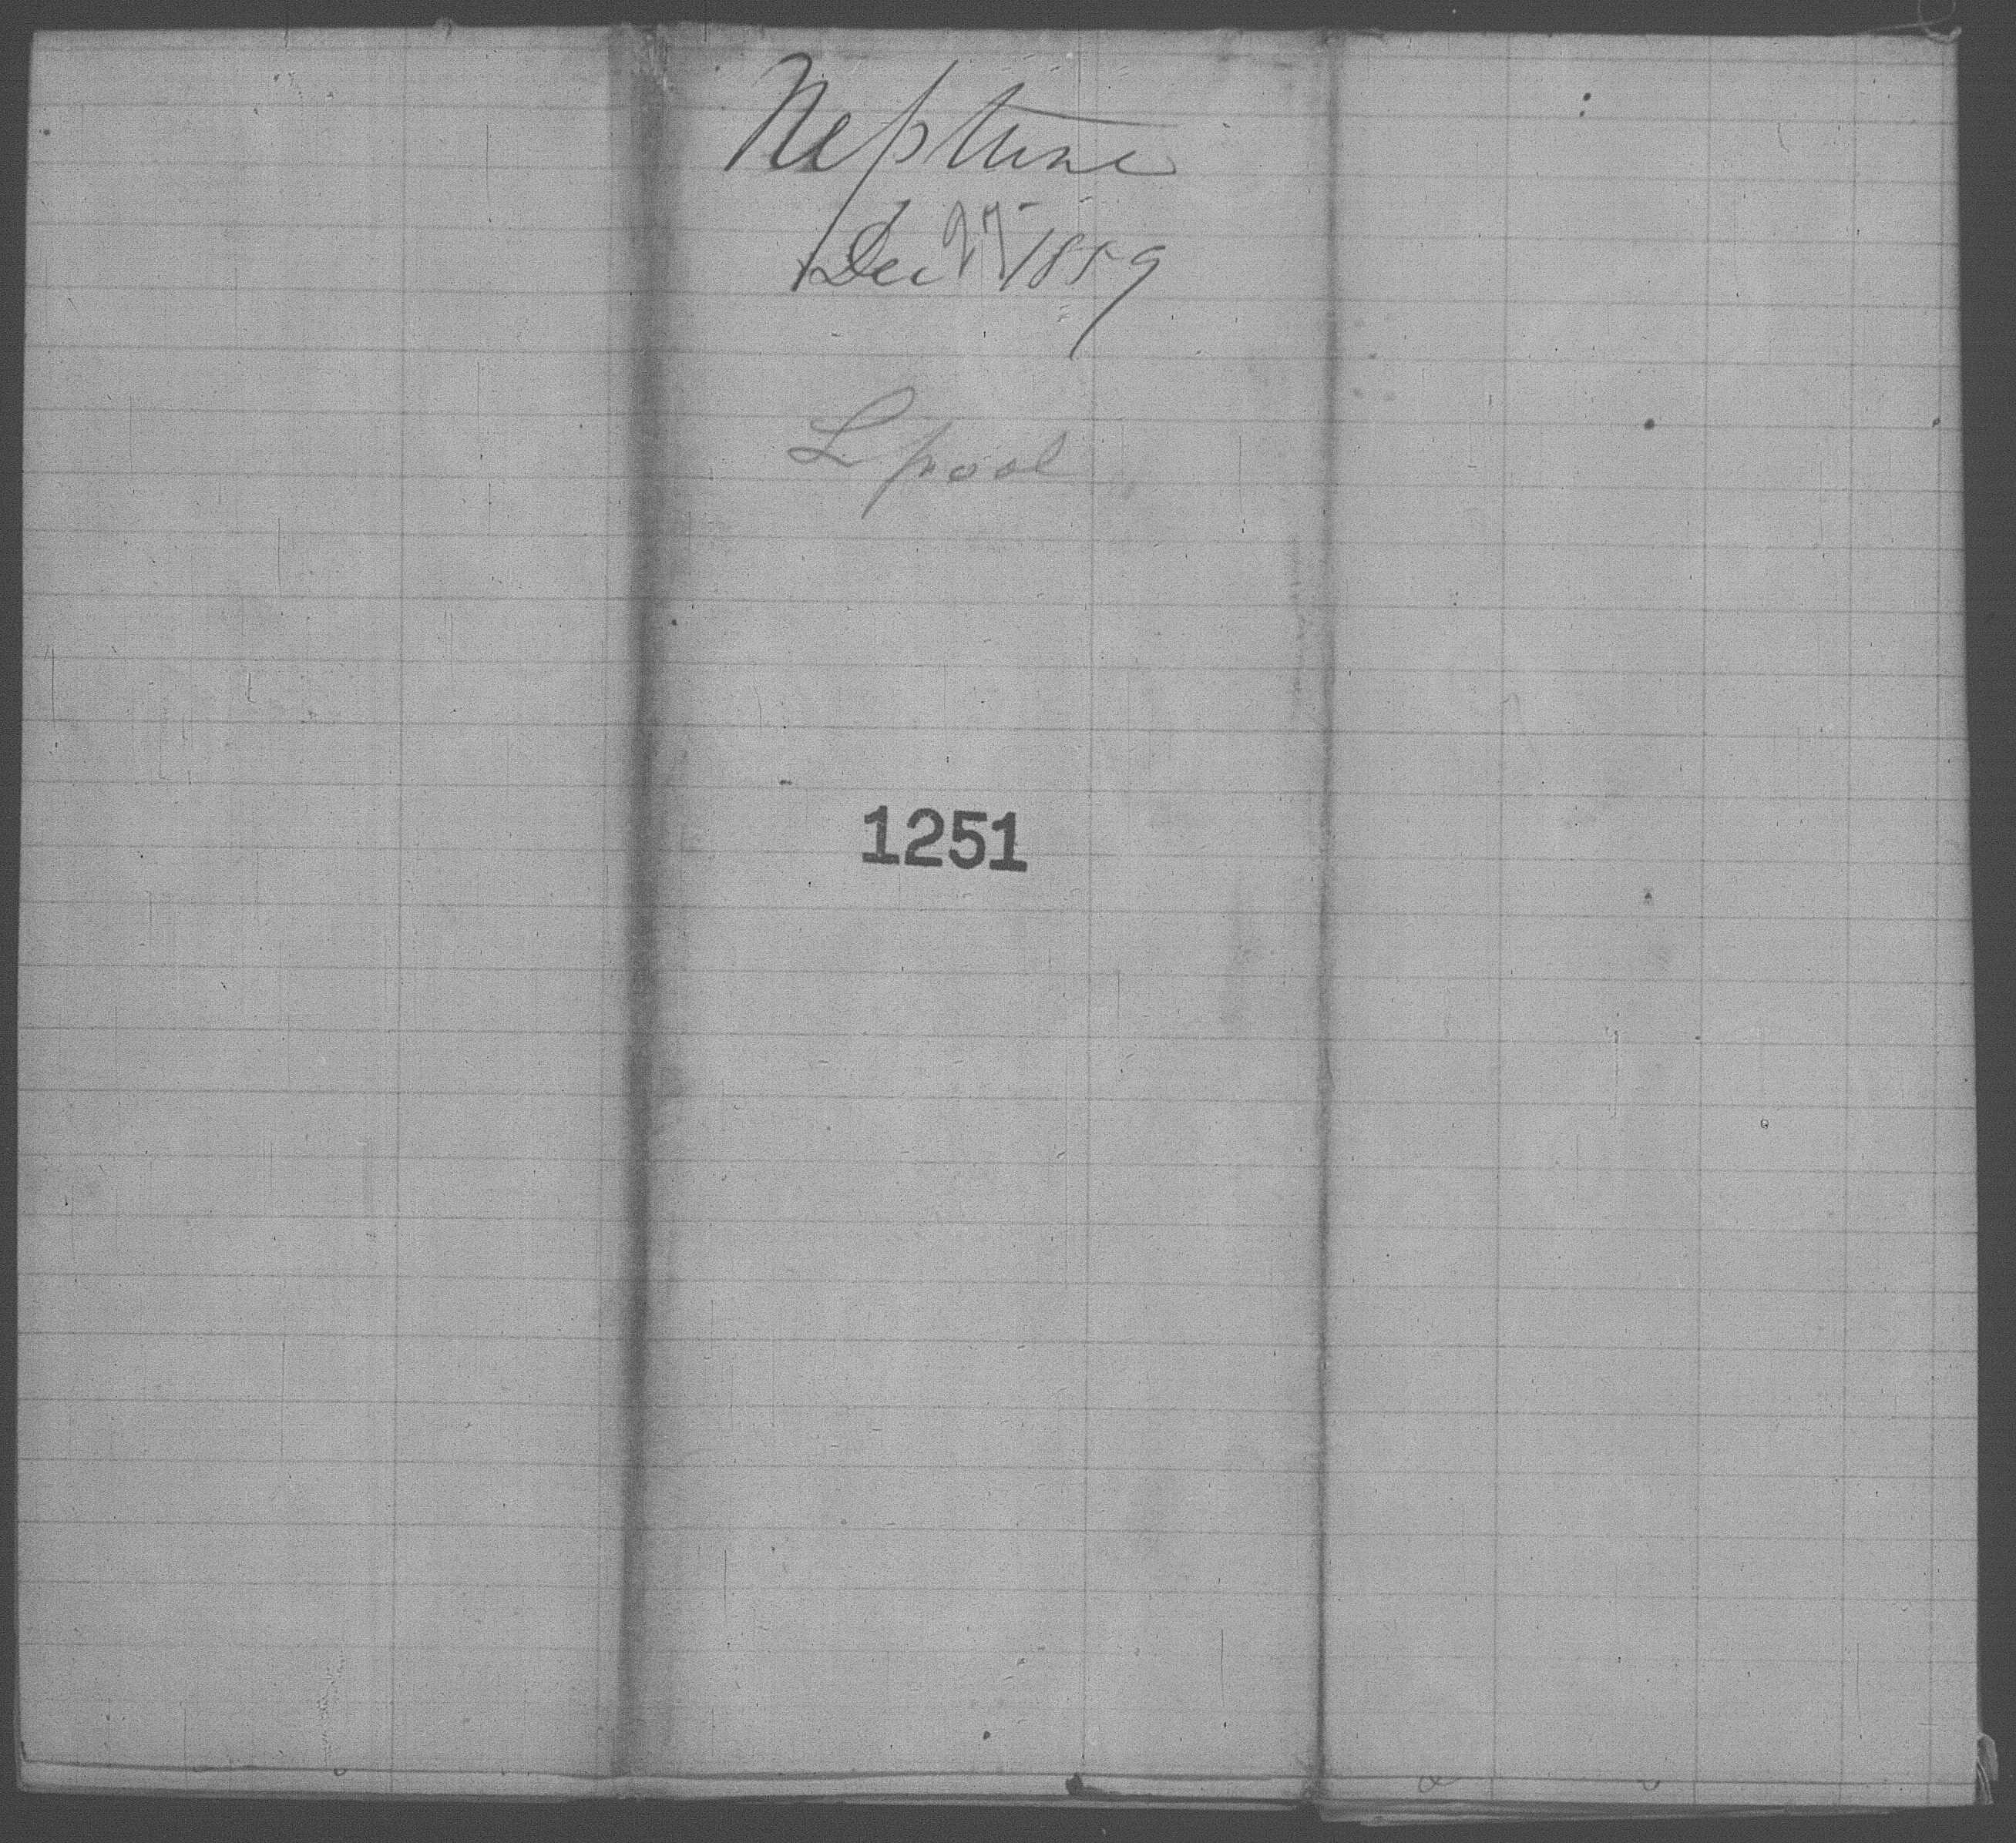 Neptune
Dec 27 1859
Lpool
1251